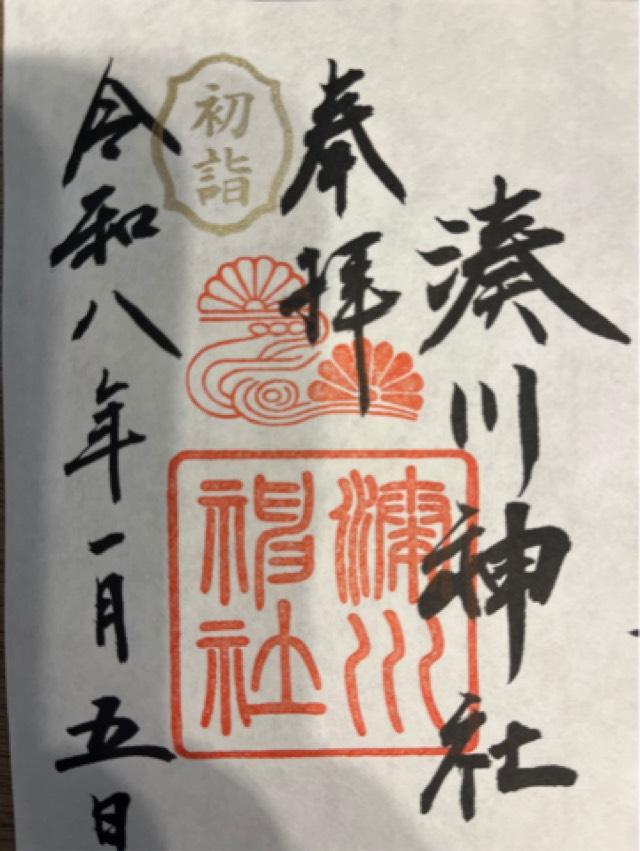 湊川神社
奉拝
初詣
令和八年一月五日
湊川
神社